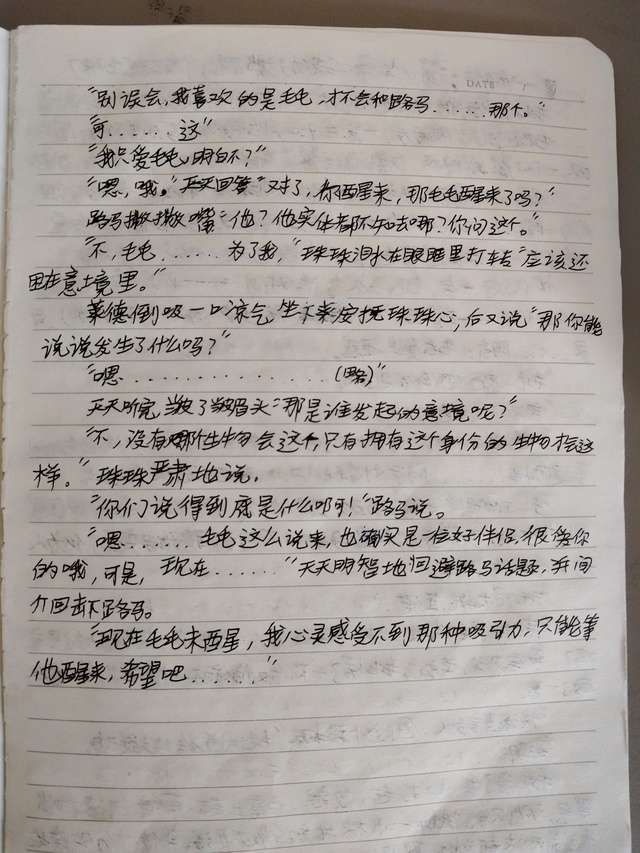 DATE
"别误会,我喜欢的是毛毛,才不会和路马......那个。"
"可......这"
"我只爱毛毛,明白不?"
"嗯,哦。"天天回答"对了,你酉星来,那毛毛酉星来了吗?"
路马撇撇嘴"他?他实体都不知去哪?你问这个。"
"不,毛毛......为了我,"珠珠泪水在眼睛里打转"应该还
困在意境里。"
莱德倒吸一口凉气,坐下来安抚珠珠心,后又说"那你能
说说发生了什么吗?"
"嗯................(略)"
天天听完,皱了皱眉头"那是谁发起的意境呢?"
"不,没有哪个生物会这个,只有拥有这个身份的生物才会这
样。"珠珠严肃地说.
"你们说得到底是什么啊!"路马说。
"嗯.......毛毛这么说来,也确实是一位好伴侣,很爱你
的哦,可是,现在......"天天明智地回避路马话题,并间
介回击下路马。
"现在毛毛未酉星,我心灵感受不到那种吸引力,只能等
他酉星来,希望吧......"